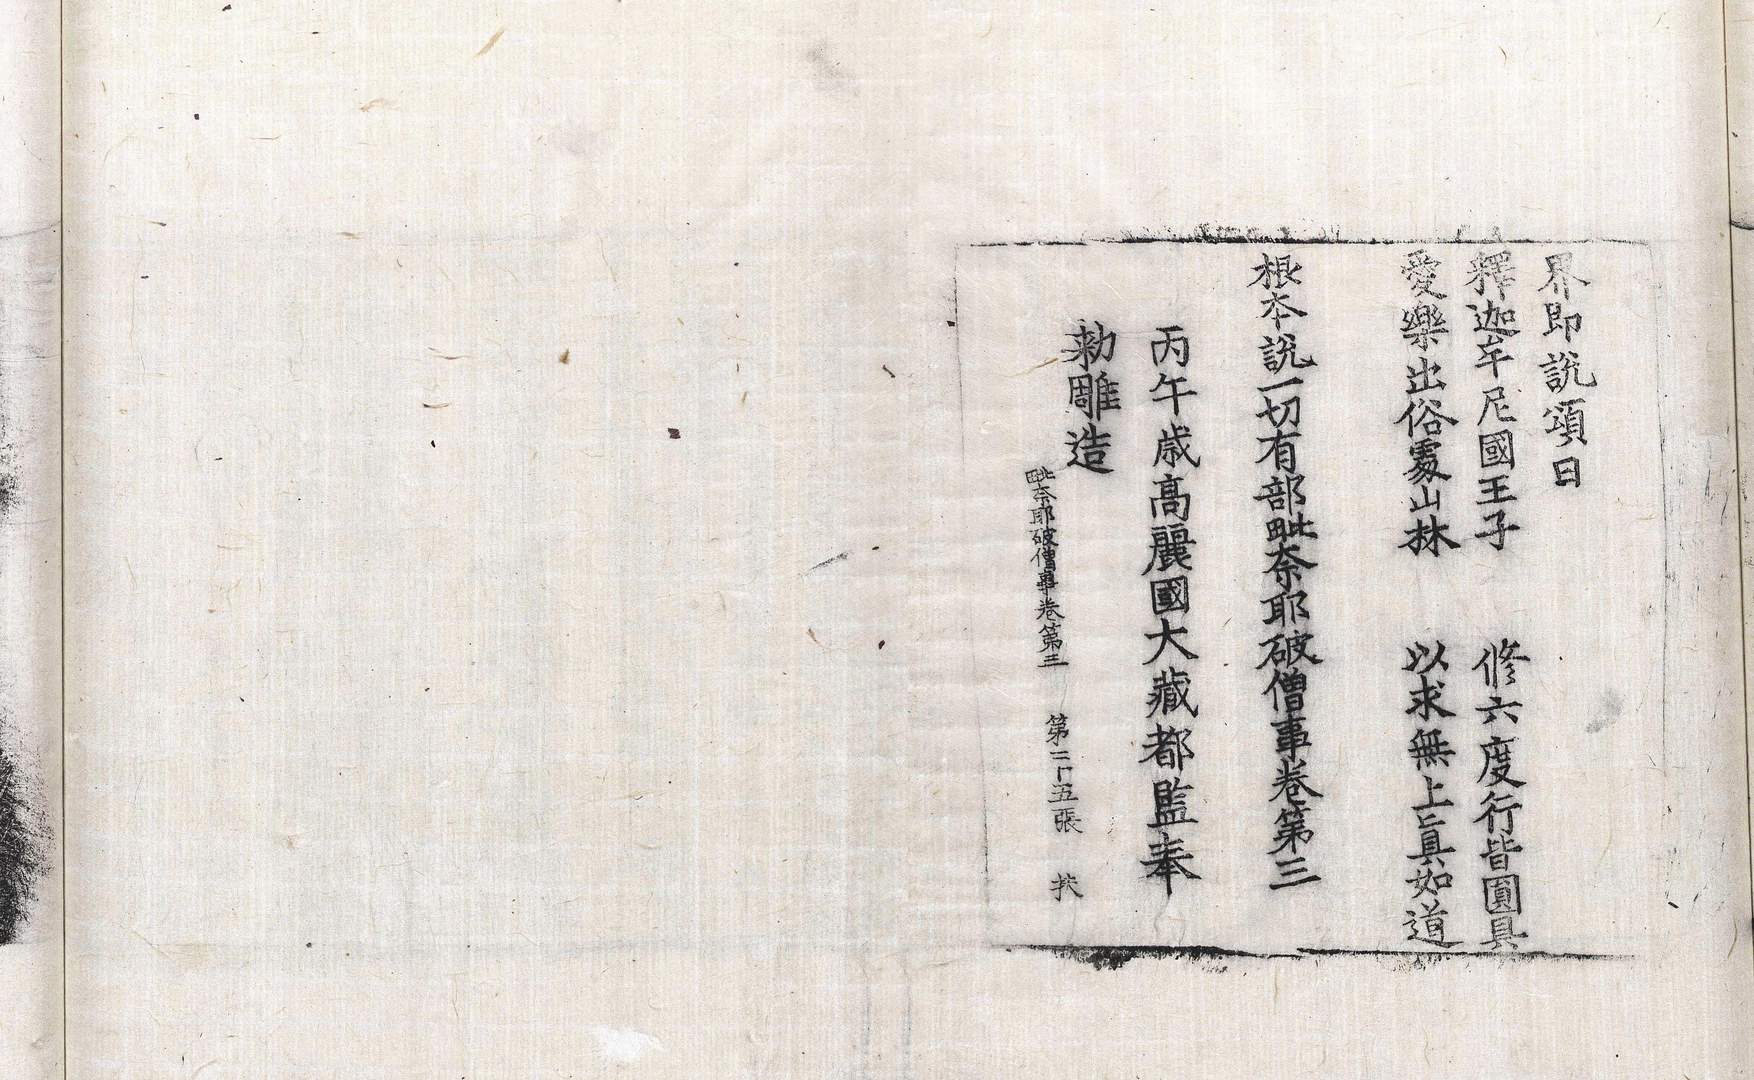 界即說頌曰
釋迦牟尼國王子　修六度行皆圓具
愛樂出俗處山林　以求無上眞如道
根本說一切有部毗奈耶破僧事卷第三
丙午歲高麗國大藏都監奉
勑雕造
毗奈耶破僧事卷第三　第二十五張　扶